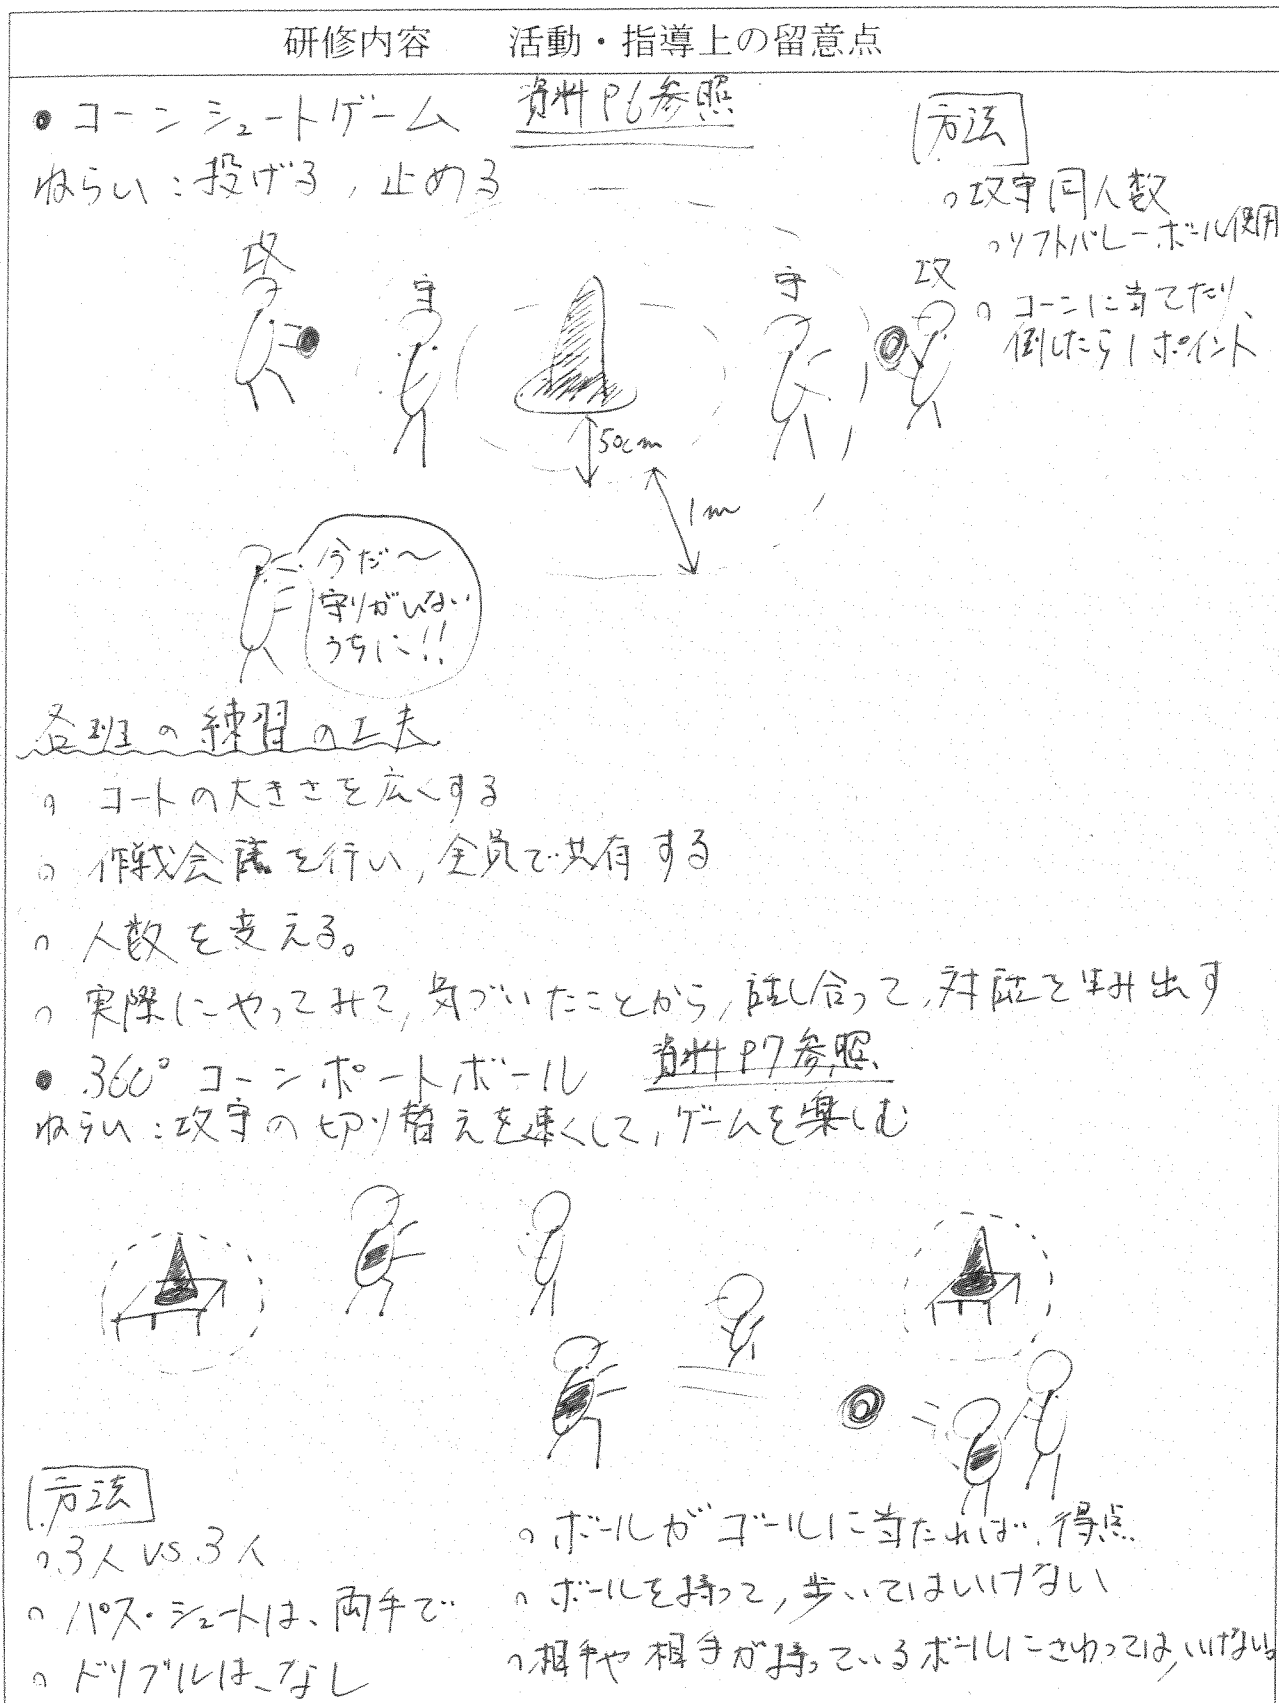 研修内容　　活動・指導上の留意点
● コーンシュートゲーム　資料P6参照
ねらい：投げる，止める
方法
○攻守同人数
○ソフトバレーボール使用
○コーンに当てたり、
倒したら1ポイント
攻
守
守
攻
50cm
1m
今だ〜
守りがいない
うちに!!
各班の練習の工夫
○ コートの大きさを広くする
○ 作戦会議を行い，全員で共有する
○ 人数を変える。
○ 実際にやってみて，気づいたことから，話し合って，対応を生み出す
● 360°コーンポートボール　資料P7参照
ねらい：攻守の切り替えを速くして，ゲームを楽しむ
方法
○3人 vs 3人
○ パス・シュートは、両手で
○ ドリブルは、なし
○ ボールがゴールに当たれば、得点
○ ボールを持って，歩いてはいけない
○相手や相手が持っているボールにさわってはいけない